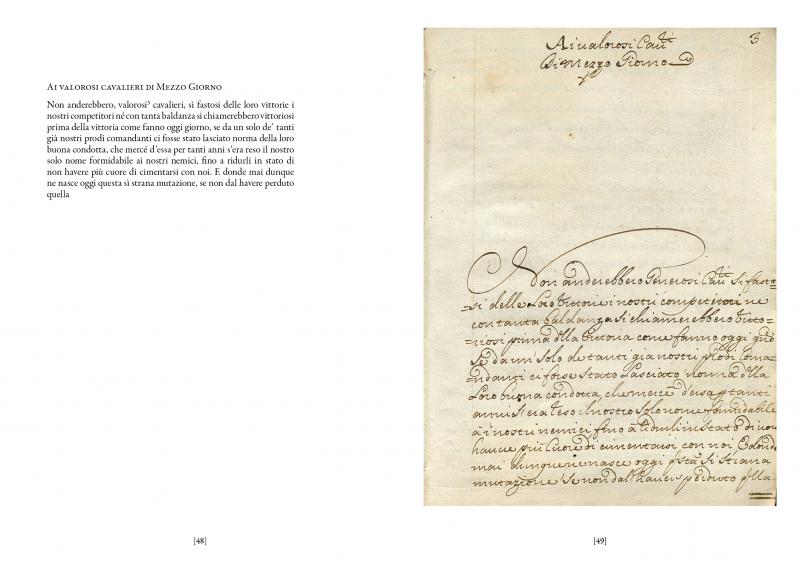 Ai valorosi cavalieri di Mezzo Giorno
Non anderebbero, valorosi³ cavalieri, sì fastosi delle loro vittorie i
nostri competitori né con tanta baldanza si chiamerebbero vittoriosi
prima della vittoria come fanno oggi giorno, se da un solo de’ tanti
già nostri prodi comandanti ci fosse stato lasciato norma della loro
buona condotta, che mercé d’essa per tanti anni s’era reso il nostro
solo nome formidabile ai nostri nemici, fino a ridurli in stato di
non havere più cuore di cimentarsi con noi. E donde mai dunque
ne nasce oggi questa sì strana mutazione, se non dal havere perduto
quella
[48]
3
Ai valorosi Cau.ri
Di Mezzo Giorno
Non anderebbero Generosi Cau.ri si fasto=
=si delle Loro vittorie i nostri competitori ne
con tanta baldanza si chiamerebbero vitto=
=riosi prima d.lla vittoria come fanno oggi
Se da un solo de tanti gia nostri prodi Coma=
=ndanti ci fosse stato Lasciato norma d.lla
Loro buona condotta, che mercè d'essa tanti
anni s'era reso il nostro solo nome formidabile
a i nostri nemici fino a ridurli in stato di non
hauere più Cuore di cimentarsi con noi E donde
mai dunque ne nasce oggi si strana
mutazione se non dal hauere perduto q.lla
[49]